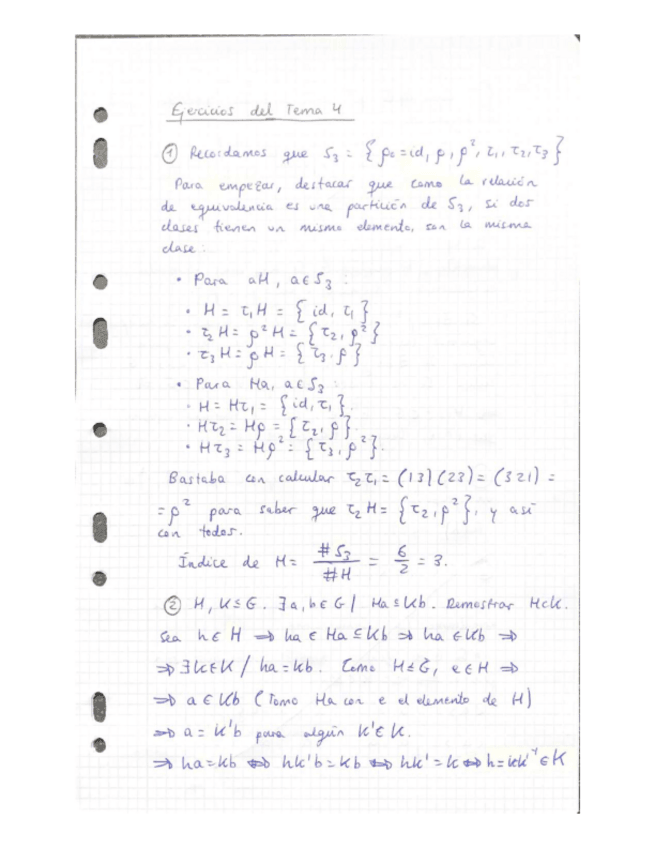 Ejercicios del Tema 4
① Recordamos que S₃ = { ρ₀ = id, ρ, ρ², τ₁, τ₂, τ₃ }
Para empezar, destacar que como la relación
de equivalencia es una partición de S₃, si dos
clases tienen un mismo elemento, son la misma
clase:
• Para aH, a ∈ S₃ :
• H = τ₁H = { id, τ₁ }
• τ₂H = ρ²H = { τ₂, ρ² }
• τ₃H = ρH = { τ₃, ρ }
• Para Ha, a ∈ S₃ :
• H = Hτ₁ = { id, τ₁ }.
• Hτ₂ = Hρ = { τ₂, ρ }.
• Hτ₃ = Hρ² = { τ₃, ρ² }.
Bastaba con calcular τ₂τ₁ = (13)(23) = (321) =
= ρ² para saber que τ₂H = { τ₂, ρ² }, y así
con todos.
Índice de H = #S₃ / #H = 6/2 = 3.
② H, K ≤ G. ∃ a, b ∈ G / Ha ⊆ Kb. Demostrar H⊂K.
Sea h ∈ H ⇒ ha ∈ Ha ⊆ Kb ⇒ ha ∈ Kb ⇒
⇒ ∃ k ∈ K / ha = kb. Como H ≤ G, e ∈ H ⇒
⇒ a ∈ Kb (Tomo Ha con e el elemento de H)
⇒ a = k'b para algún k' ∈ K.
⇒ ha = kb ⇔ hk'b = kb ⇔ hk' = k ⇔ h = kk'⁻¹ ∈ K